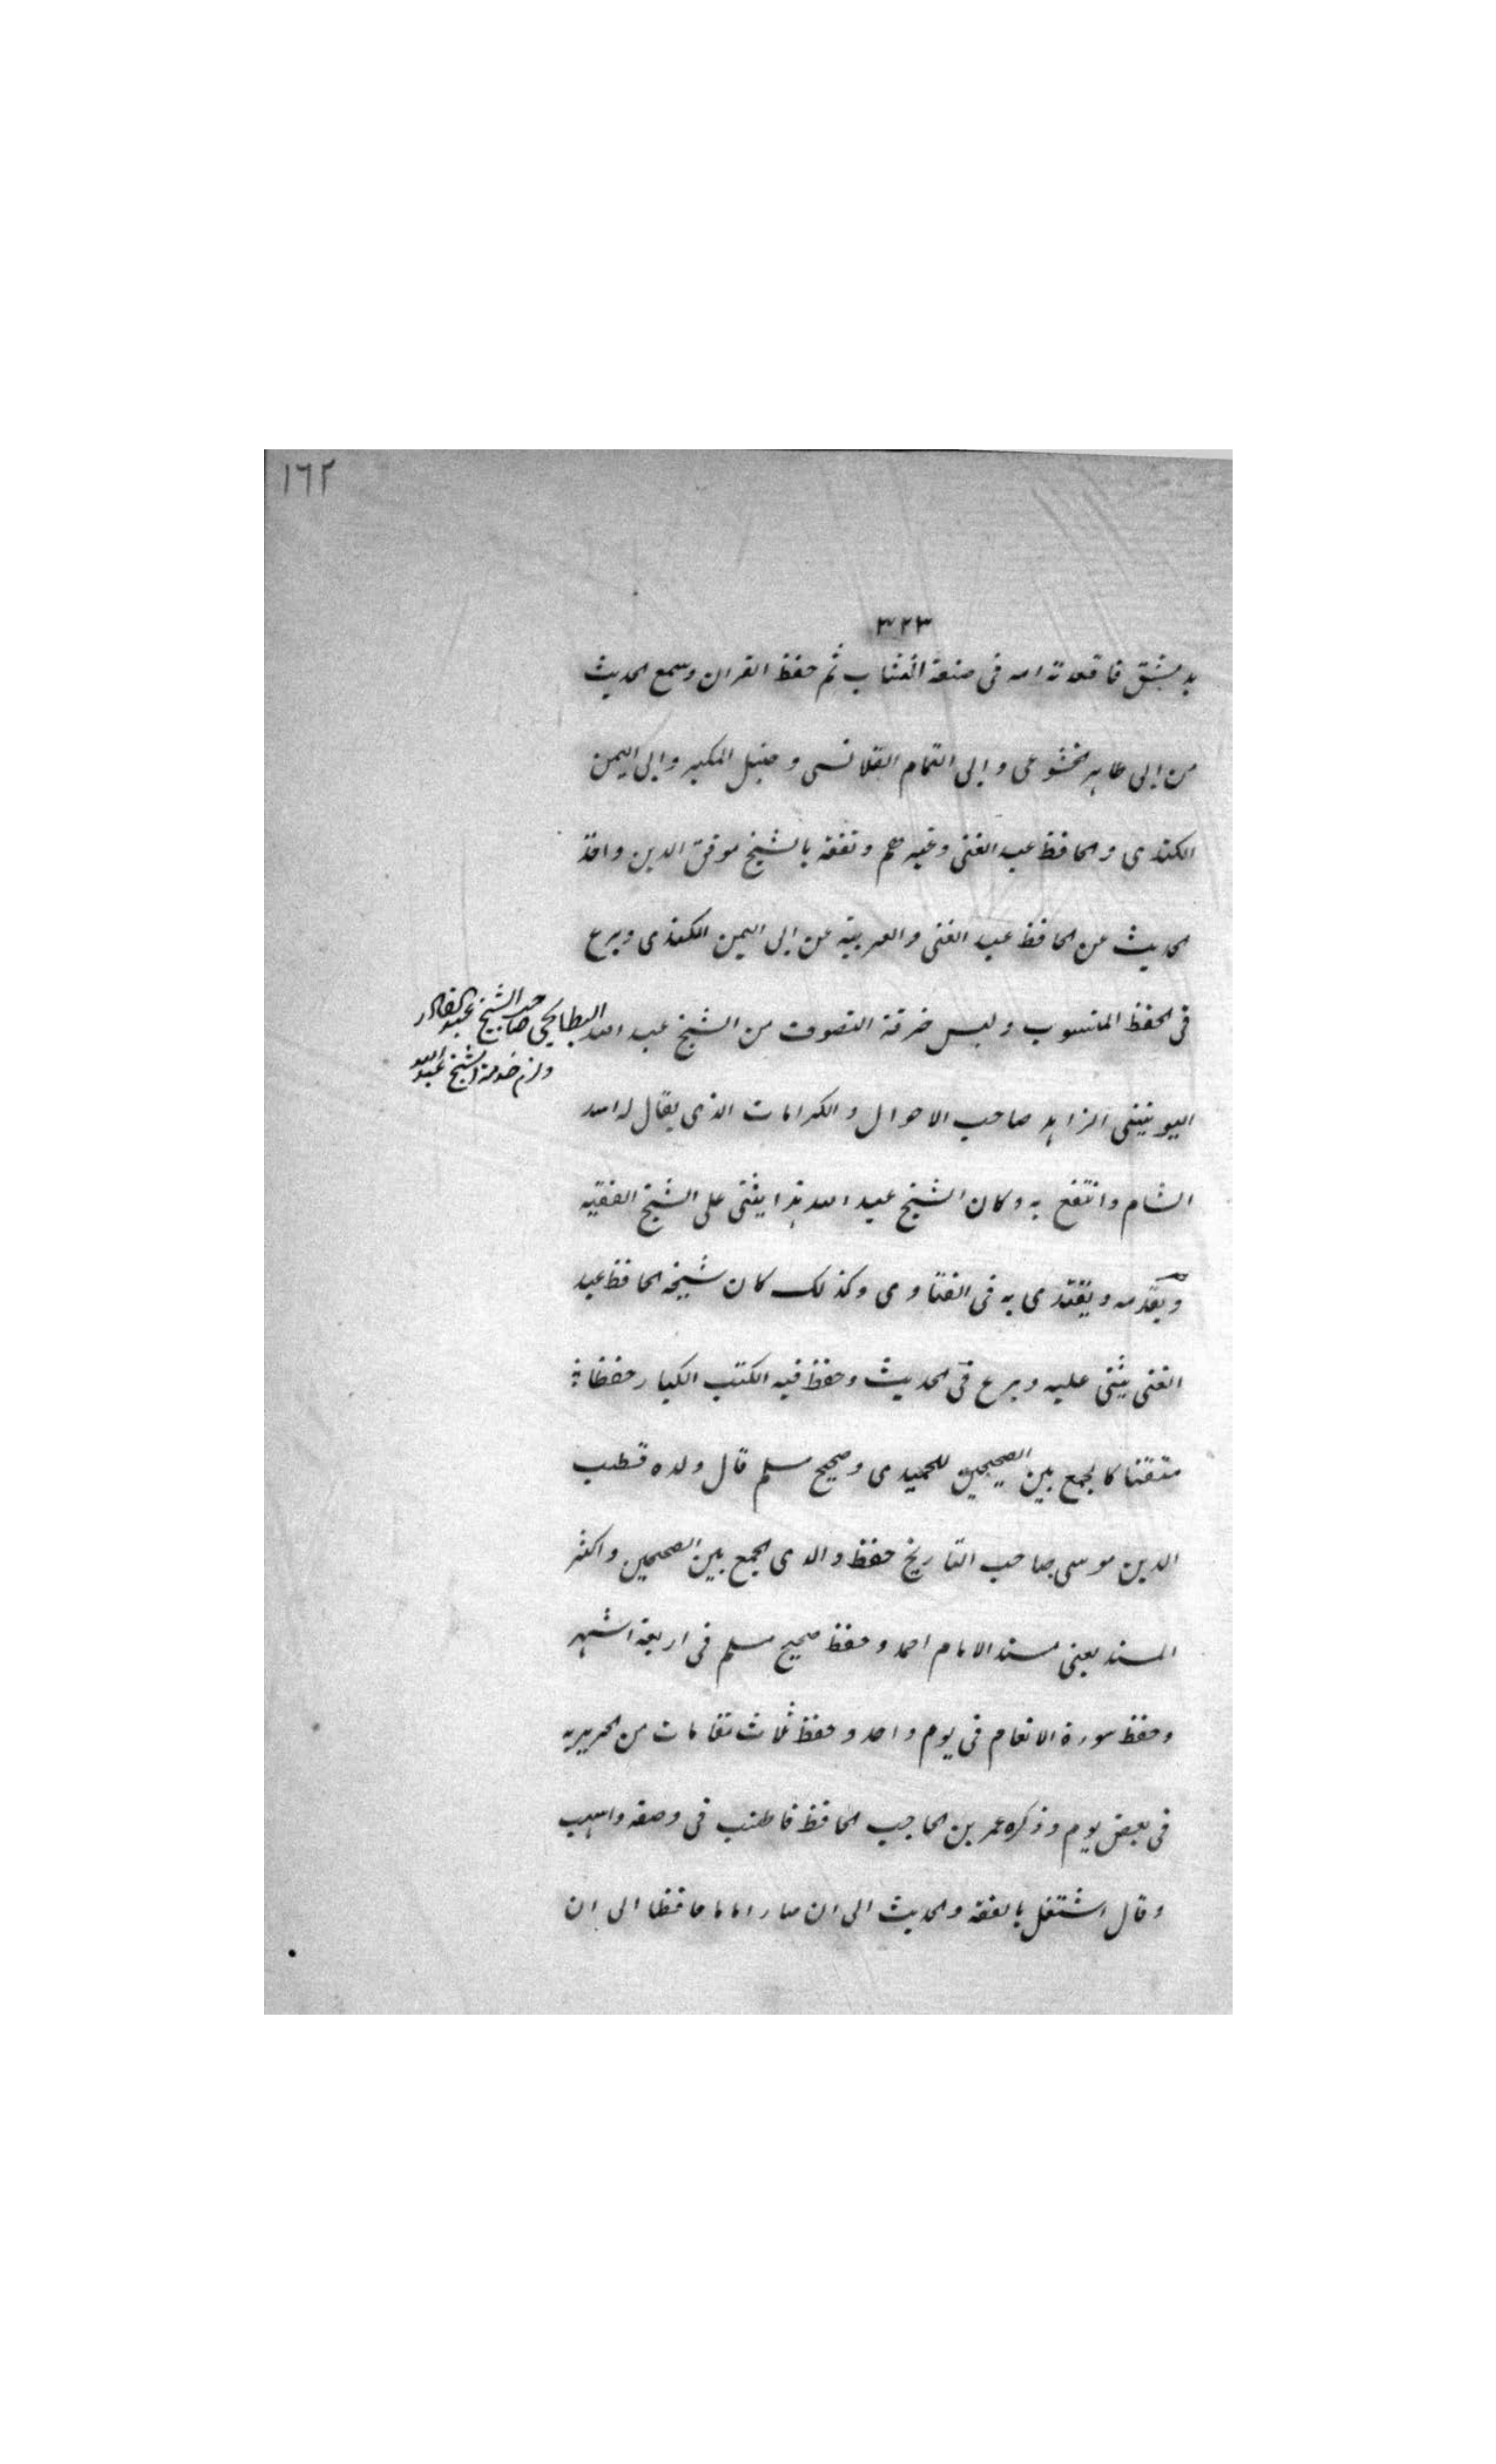 ١٦٢
٣٢٣
بدمشق فاقعدته امه فى صنعة النشاب ثم حفظ القران وسمع الحديث
من ابى طاهر الخشوعى وابى التمام القلانسى وحنبل المكبر وابى اليمن
الكندى والحافظ عبد الغنى وغيرهم وتفقه بالشيخ موفق الدين واخذ
الحديث عن الحافظ عبد الغنى والعربية عن ابى اليمن الكندى وبرع
فى الحفظ المنسوب ولبس خرقة التصوف من الشيخ عبد الله البطايحى صاحب الشيخ عبد القادر
ولزم خدمة الشيخ عبد الله
اليونينى الزاهد صاحب الاحوال والكرامات الذى يقال له اسد
الشام وانتفع به وكان الشيخ عبد الله هذا يثنى على الشيخ الفقيه
ويقدمه ويقتدى به فى الفتاوى وكذلك كان شيخه الحافظ عبد
الغنى يثنى عليه وبرع فى الحديث وحفظ فيه الكتب الكبار حفظا
متقنا كالجمع بين الصحيحين للحميدى وصحيح مسلم قال ولده قطب
الدين موسى صاحب التاريخ حفظ والدى الجمع بين الصحيحين واكثر
المسند يعنى مسند الامام احمد وحفظ صحيح مسلم فى اربعة اشهر
وحفظ سورة الانعام فى يوم واحد وحفظ ثلاث مقامات من الحريرية
فى بعض يوم وذكره عمر بن الحاجب الحافظ فاطنب فى وصفه واسهب
وقال اشتغل بالفقه والحديث الى ان صار اماما حافظا الى ان